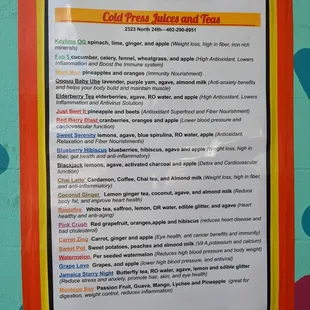 Cold Press Juices and Teas
2323 North 24th—402-290-8951
Keylime OG spinach, lime, ginger, and apple (Weight loss, high in fiber, iron rich
minerals)
Fab 5 cucumber, celery, fennel, wheatgrass, and apple (High Antioxidant, Lowers
Inflammation and Boost the Immune system)
pineapples and oranges (Immunity Nourishment)
Baby Ube lavender, purple yam, agave, almond milk (Anti-anxiety benefits
and helps your body build and maintain muscle)
Elderberry Tea elderberries, agave, RO water, and apple (High Antioxidant, Lowers
Inflammation and Antivirus Solution)
Just Beet It pineapple and beets (Antioxidant Superfood and Fiber Nourishment)
Red Berry Blast cranberries, oranges and apple (Lower blood pressure and
cardiovascular function)
Sweet Serenity lemons, agave, blue spirulina, RO water, apple (Antioxidant,
Relaxation and Fiber Nourishments)
Blueberry Hibiscus blueberries, hibiscus, agave and apple (Weight loss, high in
fiber, gut health and anti-inflammatory)
Blackjack lemons, agave, activated charcoal and apple (Detox and Cardiovascular
function)
Chai Latte' Cardamon, Coffee, Chai tea, and Almond milk (Weight loss, high in fiber,
and anti-inflammatory)
Coconut Ginger Lemon ginger tea, coconut, agave, and almond milk (Reduce
body fat, and improve heart health)
Rastafire White tea, saffron, lemon, OR water, edible glitter, and agave (Heart
healthy and anti-aging)
Pink Crush Red grapefruit, oranges,apple and hibiscus (reduces heart disease and
bad cholesterol)
Carrot Zing Carrot, ginger and apple (Eye health, anti cancer benefits and immunity)
Sweet Pot Sweet potatoes, peaches and almond milk (Vit A,potassium and calcium)
Watermelon Per seeded watermelon (Reduces high blood pressure and body weight)
Grape Love Grapes, and apple (lower high blood pressure, and antiviral)
Jamaica Starry Night Butterfly tea, RO water, agave, lemon and edible glitter
(Reduce stress and anxiety, promote hair, skin, and eye health)
Montego Bay Passion Fruit, Guava, Mango, Lychee and Pineapple (great for
digestion, weight control, reduces inflammation)